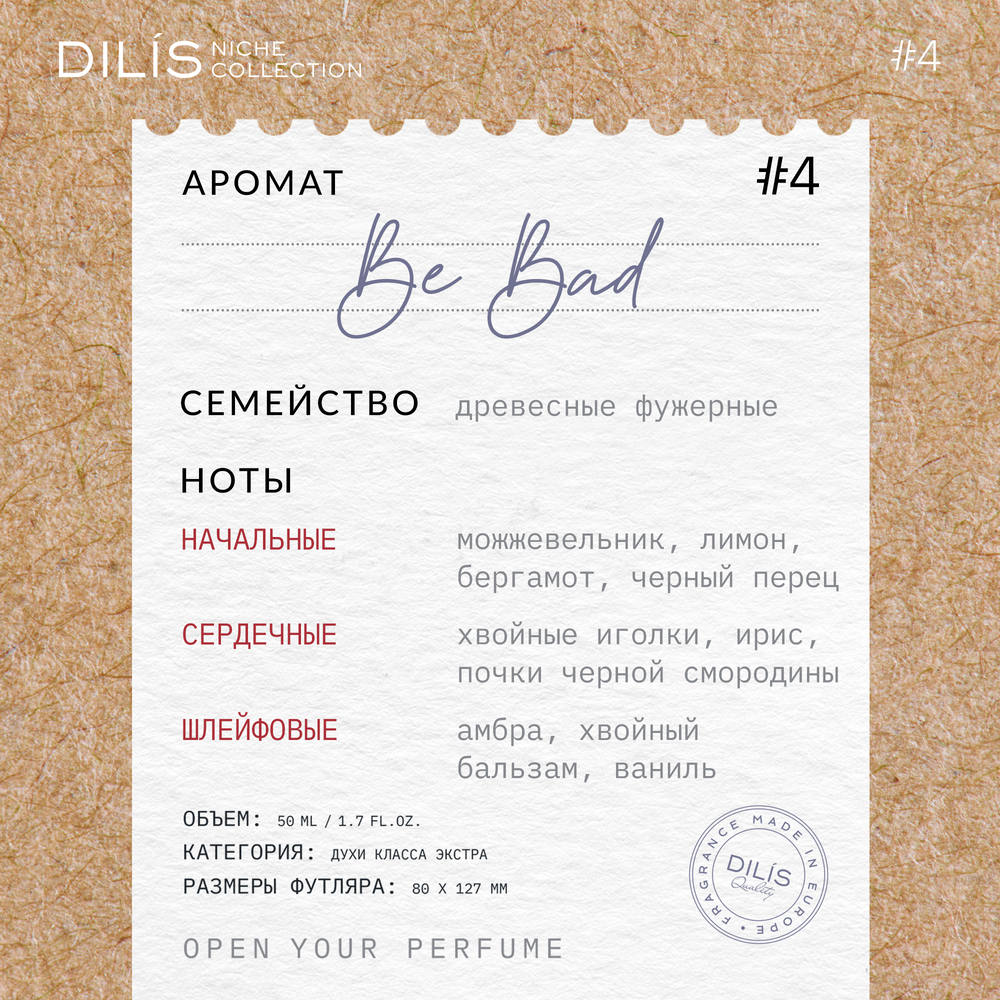 DILÍS NICHE COLLECTION
#4
АРОМАТ #4
Be Bad
СЕМЕЙСТВО древесные фужерные
НОТЫ
НАЧАЛЬНЫЕ можжевельник, лимон,
бергамот, черный перец
СЕРДЕЧНЫЕ хвойные иголки, ирис,
почки черной смородины
ШЛЕЙФОВЫЕ амбра, хвойный
бальзам, ваниль
ОБЪЕМ: 50 ML / 1.7 FL.OZ.
КАТЕГОРИЯ: ДУХИ КЛАССА ЭКСТРА
РАЗМЕРЫ ФУТЛЯРА: 80 X 127 ММ
FRAGRANCE MADE IN EUROPE •
DILÍS
Quality
OPEN YOUR PERFUME